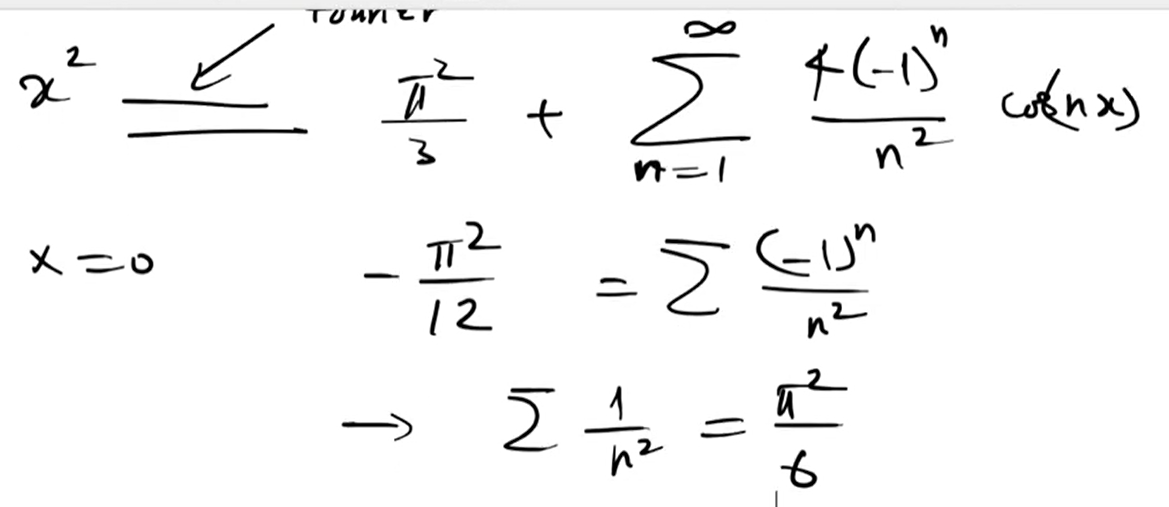 Fourier
x² = π²/3 + ∑_{n=1}^{∞} 4(-1)ⁿ/n² cos(nx)
x = 0 - π²/12 = ∑ (-1)ⁿ/n²
→ ∑ 1/n² = π²/6